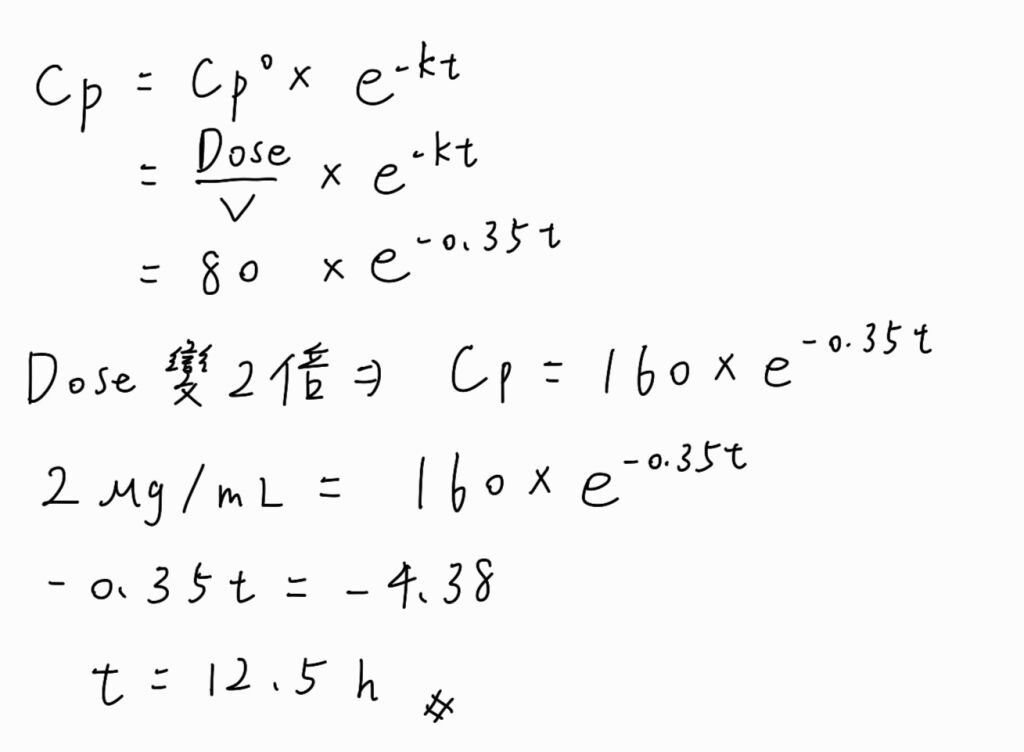 Cp = Cp° × e^-kt
= Dose/V × e^-kt
= 80 × e^-0.35t
Dose 變 2倍 ⇒ Cp = 160 × e^-0.35t
2 μg/mL = 160 × e^-0.35t
-0.35t = -4.38
t = 12.5 h #